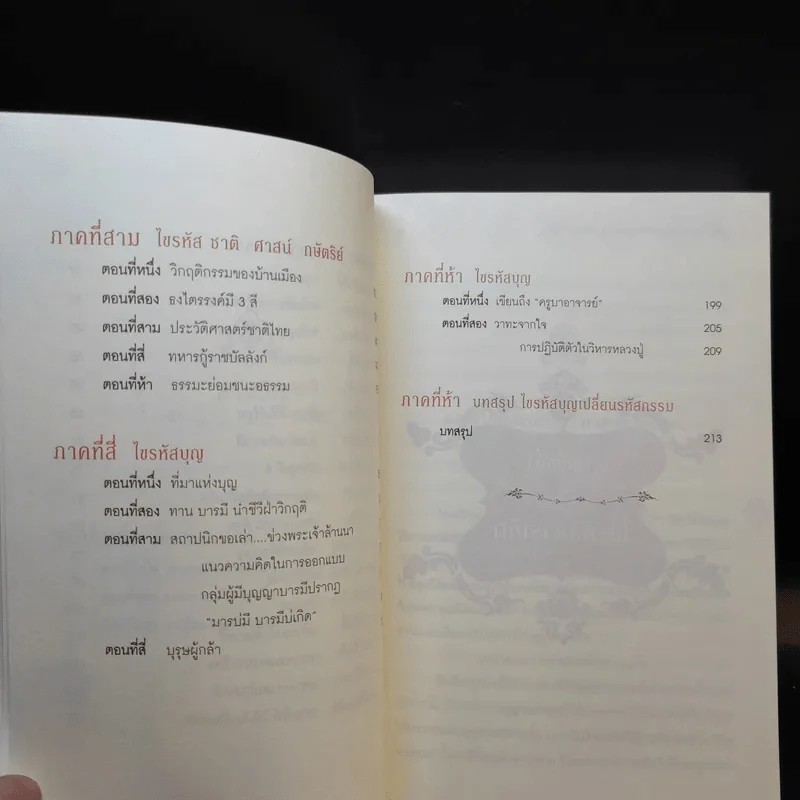 ภาคที่สาม ไขรหัส ชาติ ศาสน์ กษัตริย์
ตอนที่หนึ่ง วิกฤติกรรมของบ้านเมือง
ตอนที่สอง ธงไตรรงค์มี 3 สี
ตอนที่สาม ประวัติศาสตร์ชาติไทย
ตอนที่สี่ ทหารกู้ราชบัลลังก์
ตอนที่ห้า ธรรมะย่อมชนะอธรรม
ภาคที่สี่ ไขรหัสบุญ
ตอนที่หนึ่ง ที่มาแห่งบุญ
ตอนที่สอง ทาน บารมี นำชีวีฝ่าวิกฤติ
ตอนที่สาม สถาปนิกขอเล่า....ช่วงพระเจ้าล้านนา
แนวความคิดในการออกแบบ
กลุ่มผู้มีบุญญาบารมีปรากฏ
"มารบ่มี บารมีบ่เกิด"
ตอนที่สี่ บุรุษผู้กล้า
ภาคที่ห้า ไขรหัสบุญ
ตอนที่หนึ่ง เขียนถึง "ครูบาอาจารย์" 199
ตอนที่สอง วาทะจากใจ 205
การปฏิบัติตัวในวิหารหลวงปู่ 209
ภาคที่ห้า บทสรุป ไขรหัสบุญเปลี่ยนรหัสกรรม
บทสรุป 213